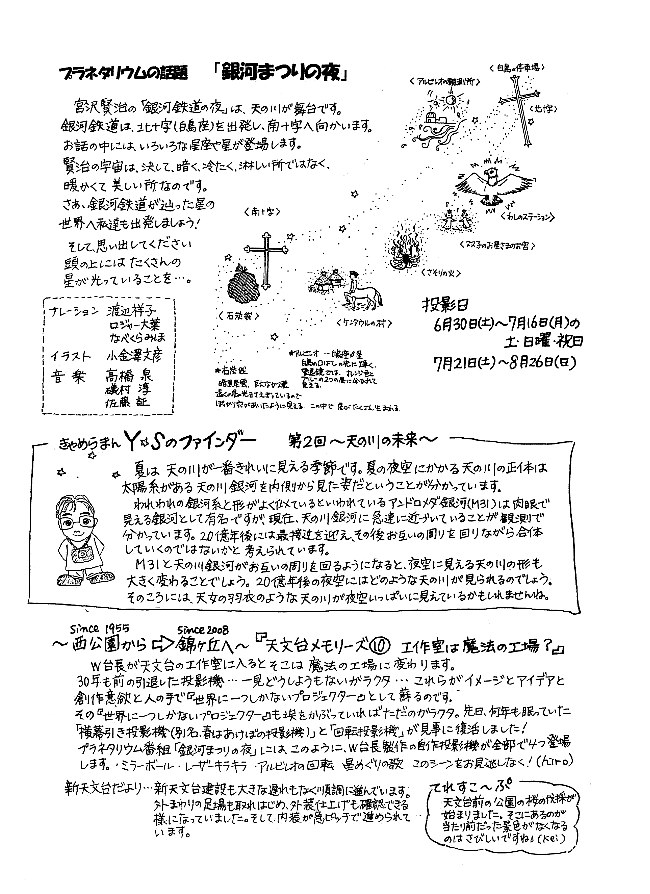 プラネタリウムの話題 「銀河まつりの夜」
宮沢賢治の「銀河鉄道の夜」は、天の川が舞台です。
銀河鉄道は、北十字(白鳥座)を出発し、南十字へ向かいます。
お話の中には、いろいろな星座や星が登場します。
賢治の宇宙は、決して、暗く、冷たく、淋しい所ではなく、
暖かくて美しい所なのです。
さあ、銀河鉄道が辿った星の
世界へ私達も出発しましょう!
そして、思い出してください
頭の上にはたくさんの
星が光っていることを…。
〈白鳥の停車場〉
〈アルビレオの観測所〉
〈北十字〉
〈わしのステーション〉
〈ふたごのお星さまのお宮〉
〈さそりの火〉
〈南十字〉
〈石炭袋〉
〈ケンタウルの村〉
ナレーション 渡辺祥子
ロジャー大葉
なべくらみほ
イラスト 小金澤文彦
音楽 高橋泉
磯村淳
佐藤証
投影日
6月30日(土)~7月16日(月)の
土・日曜・祝日
7月21(土)~8月26(日)
★石炭袋
きゃめらまんY☆Sのファインダー 第2回~天の川の未来~
夏は天の川が一番きれいに見える季節です。夏の夜空にかかる天の川の正体は
太陽系がある天の川銀河を内側から見た姿だということが分かっています。
われわれの銀河系と形がよく似ているといわれているアンドロメダ銀河(M31)は肉眼で
見える銀河として有名ですが、現在、天の川銀河に急速に近づいていることが観測で
分かっています。20億年後には最接近を迎え、その後お互いの周りを回りながら合体
していくのではないかと考えられています。
M31と天の川銀河がお互いの周りを回るようになると、夜空に見える天の川の形も
大きく変わることでしょう。20億年後の夜空にはどのような天の川が見られるのでしょう。
そのころには、天女の羽衣のような天の川が夜空いっぱいに見えているかもしれませんね。
since 1955 since 2008
~西公園から⇨錦ヶ丘へ~『天文台メモリーズ⑩ 工作室は魔法の工場?』
W台長が天文台の工作室に入るとそこは魔法の工場に変わります。
30年も前の引退した投影機…一見どうしようもないガラクタ…これらがイメージとアイデアと
創作意欲と人の手で『世界に一つしかないプロジェクター』として蘇るのです。
その『世界に一つしかないプロジェクター』も埃をかぶっていればただのガラクタ。先日、何年も眠っていた
「横幕引き投影機(別名、春はあけぼの投影機)」と「回転投影機」が見事に復活しました!
プラネタリウム番組「銀河まつりの夜」には、このように、W台長製作の自作投影機が全部で4つ登場
します。・ミラーボール・レーザーキラキラ・アルビレオの回転 星めぐりの歌 このシーンをお見逃しなく!(hiro)
新天文台だより…新天文台建設も大きな遅れもなく順調に進んでいます。
外まわりの足場も取れはじめ、外装仕上げも確認できる
様になっていました。そして、内装が急ピッチで進められて
います。
てれすこ~ぷ
天文台前の公園の桜の伐採が
始まりました。そこにあるのが
当たり前だった景色がなくなる
のはさびしいですね!(kei)